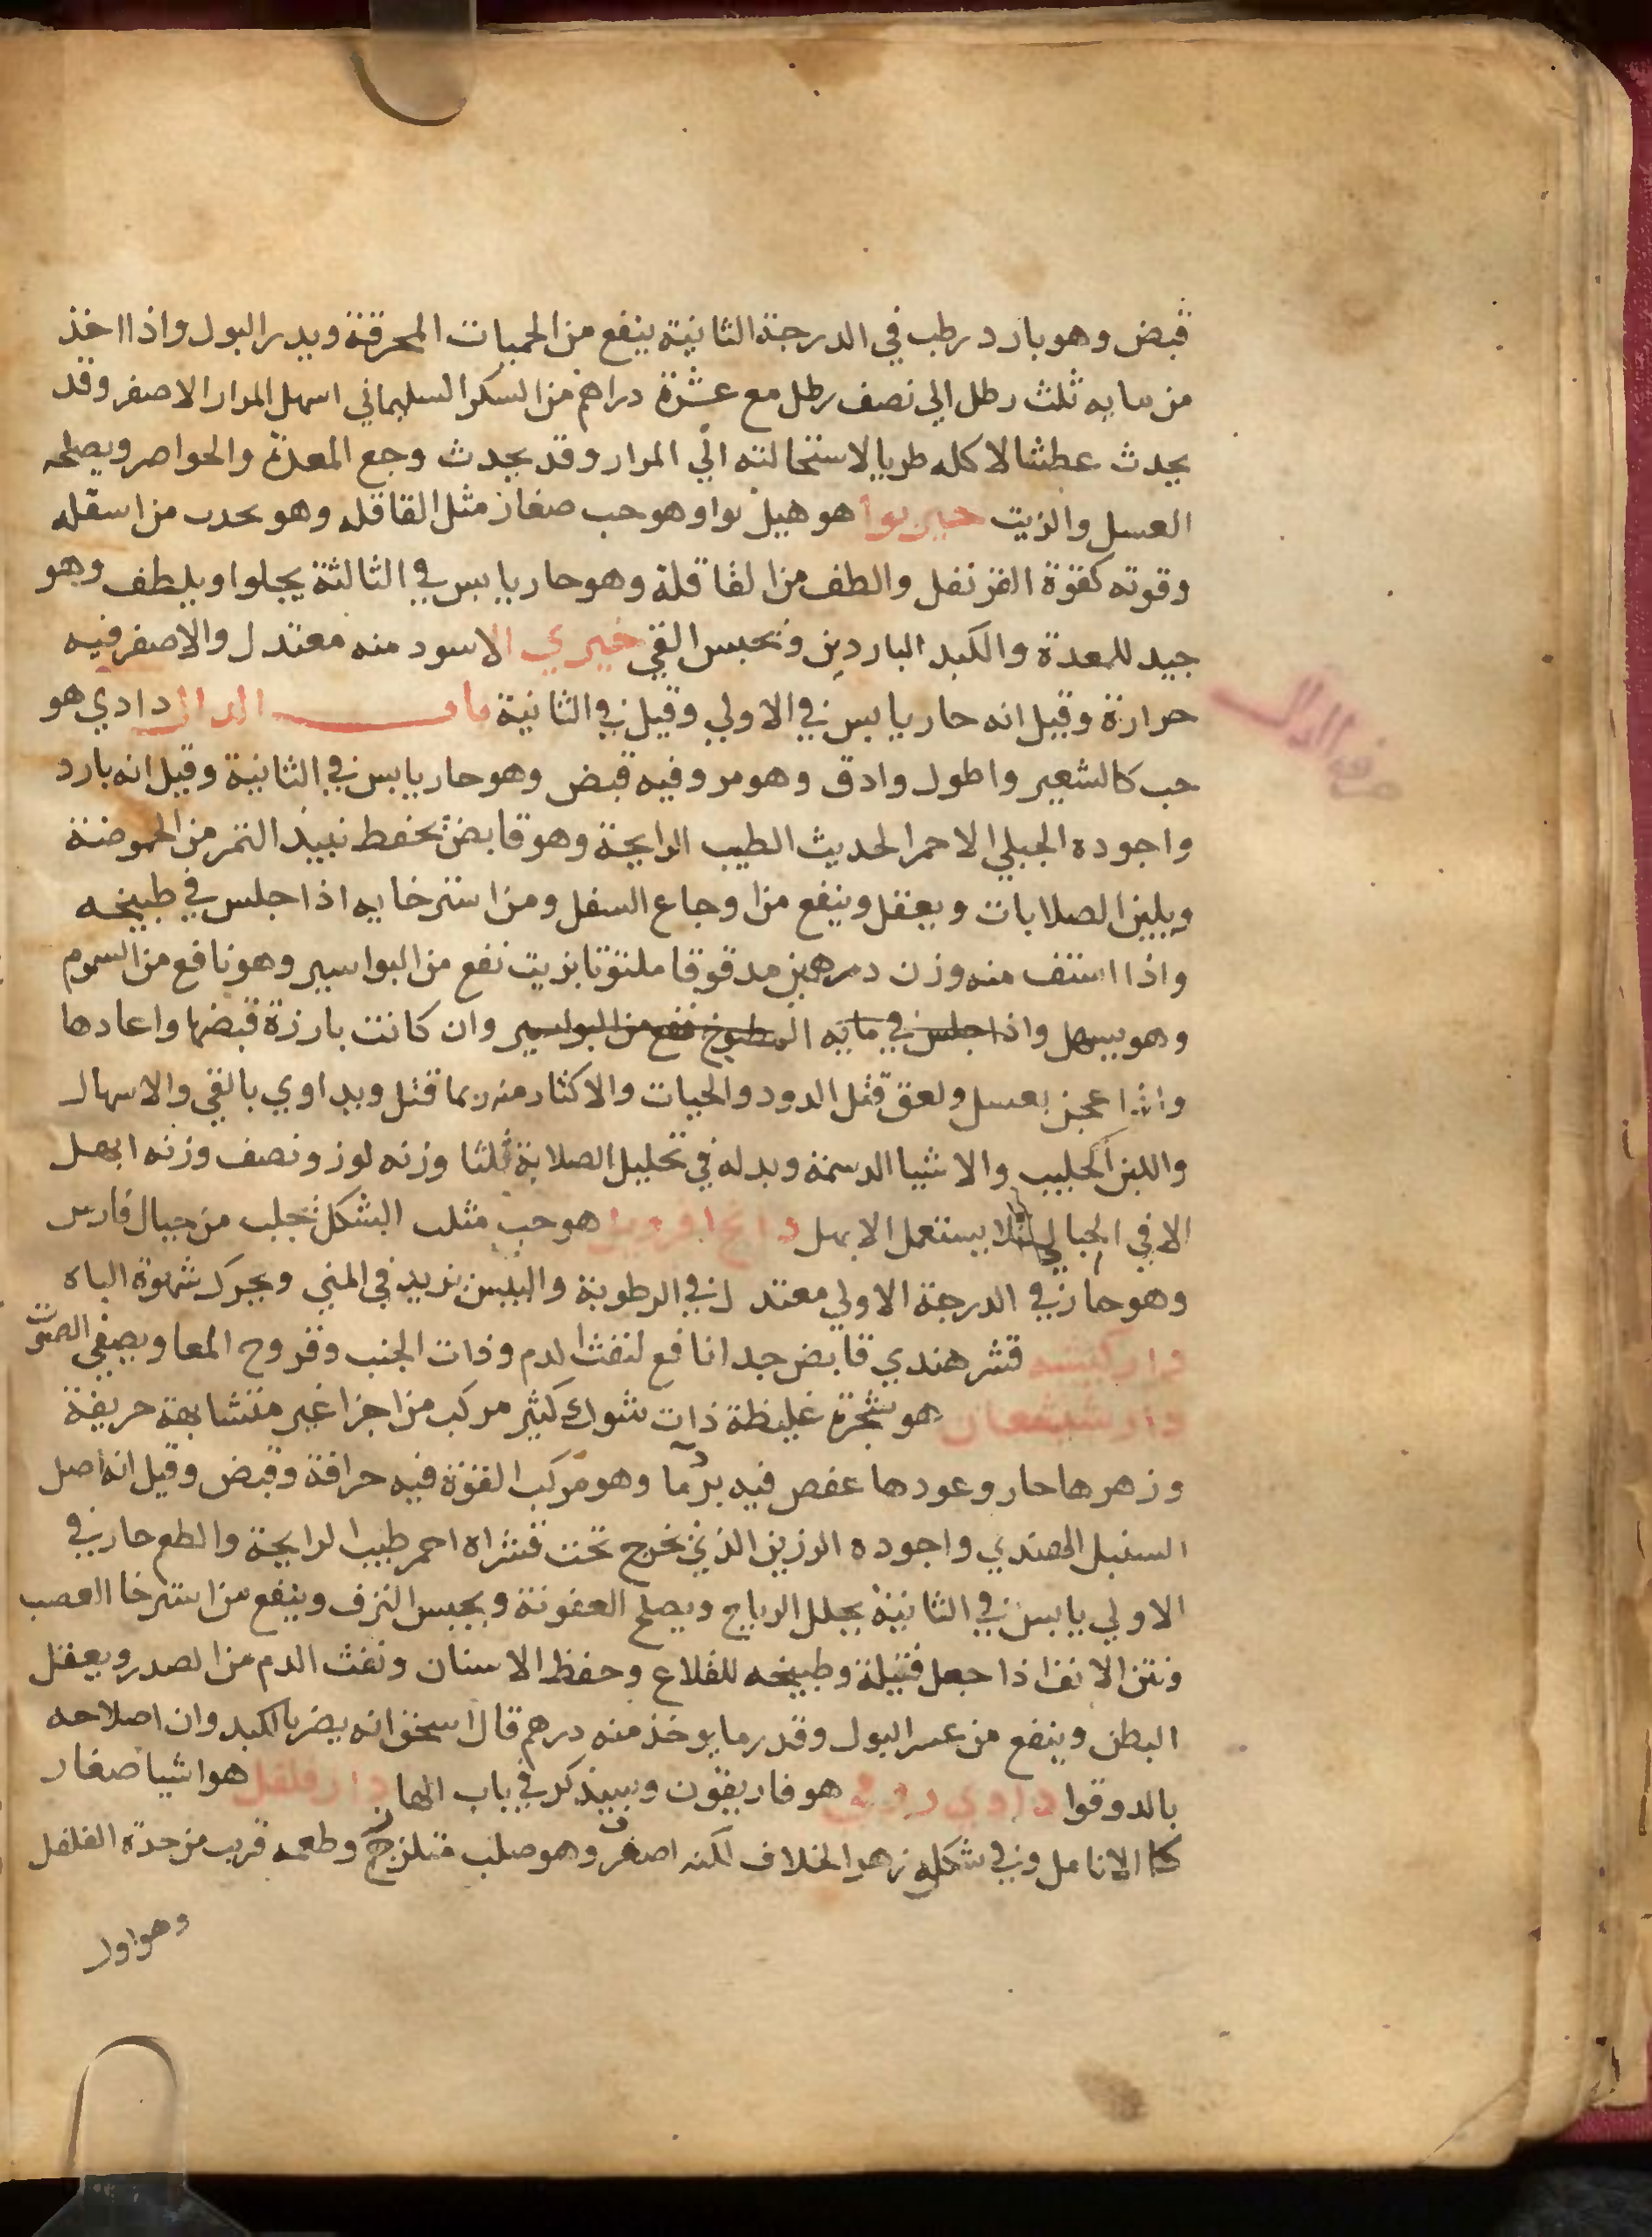 قبض وهو بارد رطب في الدرجة الثانية ينفع من الحميات المحرقة ويدر البول واذا اخذ
من مايه ثلث رطل الي نصف رطل مع عشرة دراهم من السكر السليماني اسهل المرار الاصفر وقد
يحدث عطشا لاكله طريا لاستحالته الي المرار وقد يحدث وجع المعدة والخواصر ويصلحه
العسل والزيت خير بوا هو هيل بوا وهو حب صغار مثل القاقله وهو يحدب من اسفله
وقوته كقوة القرنفل والطف من القاقلة وهو حار يابس في الثالثة يجلوا ويلطف وهو
جيد للمعدة والكبد الباردين ويحبس القي خيري الاسود منه معتدل والاصفر فيه
حرارة وقيل انه حار يابس في الاولي وقيل في الثانية باب الدال دادي هو
حرف الدال
حب كالشعير واطول وادق وهو مر وفيه قبض وهو حار يابس في الثانية وقيل انه بارد
واجوده الجبلي الاحمر الحديث الطيب الرايحة وهو قابض يحفظ نبيذ التمر من الحموضة
ويلين الصلابات ويعقل وينفع من اوجاع السفل ومن استرخايه اذا جلس في طبيخه
واذا استف منه وزن درهمين مدقوقا ملتوتا بزيت نفع من البواسير وهو نافع من السموم
وهو يسهل واذا جلس في مايه المطبوخ نفع من البواسير وان كانت بارزة قبضها واعادها
واذا عجن بعسل ولعق قتل الدود والحيات والاكثار منه ربما قتل ويداوي بالقي والاسهال
واللبن الحليب والاشيا الدسمة وبدله في تحليل الصلابة ثلثا وزنه لوز ونصف وزنه ابهل
الا في الحبالي فلا يستعمل الابهل هو حب مثلث الشكل يجلب من جبال فارس
وهو حار في الدرجة الاولي معتدل في الرطوبة واليبس يزيد في المني ويحرك شهوة الباه
دار كيسه قشر هندي قابض جدا نافع لنفث الدم وذات الجنب وقروح المعا ويصفي الصوت
دار شيشعان هو شجرة غليظة ذات شوك كثير مركب من اجزا غير متشابهة حريفة
وزهرها حار وعودها عفص فيه برد ما وهو مركب القوة فيه حرافة وقبض وقيل انه اصل
السنبل الهندي واجوده الرزين الذي يخرج تحت قشراه احمر طيب الرايحة والطعم حار في
الاولي يابس في الثانية يحلل الرياح ويصلح العفونة ويحبس النزف وينفع من استرخا العصب
ونتن الانف اذا جعل فتيلة وطبيخه للقلاع وحفظ الاسنان ونفث الدم من الصدر ويعقل
البطن وينفع من عسر البول وقدر ما يوخذ منه درهم قال اسحق انه يضر بالكبد وان اصلاحه
بالدوقوا داوي رومي هو فاريقون وسيذكر في باب الها دار فلفل هو اشيا صغار
كالانامل وفي شكله زهر الخلاف لكنه اصغر وهو صلب متلزج وطعمه قريب من حدة الفلفل
وهو اول